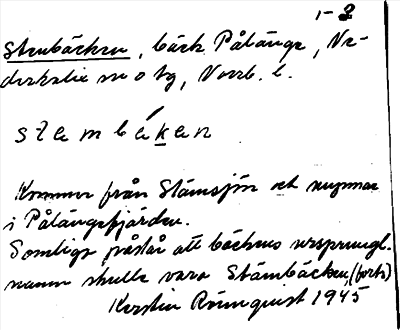 1-2
Stenbäcken, bäck Pålänge, Ne-
derkalix sn o tg, Norrb. l.
stembékan
Kommer från Stämsjön och mynnar
i Pålängefjärden.
Somliga påstår att bäckens ursprungl.
namn skulle vara Stämbäcken, (forts)
Kerstin Rönnquist 1945